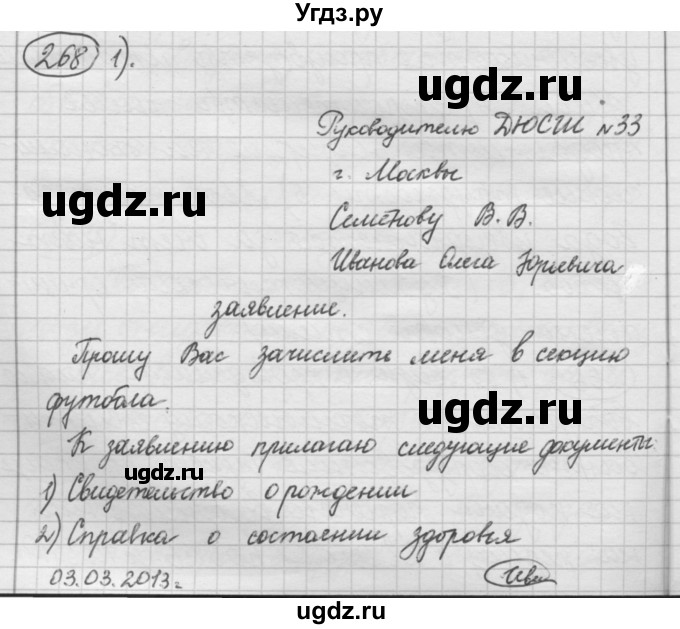 Угдз.ру
268 1).
ugdz.ru
Руководителю ДЮСШ №33
г. Москвы
ugdz.ru
Семёнову В. В.
Иванова Олега Юрьевича
заявление.
Прошу Вас зачислить меня в секцию
футбола.
ugdz.ru
К заявлению прилагаю следующие документы:
ugdz.ru
1) Свидетельство о рождении
2) Справка о состоянии здоровья
03.03.2013г.
Ив
ugdz.ru